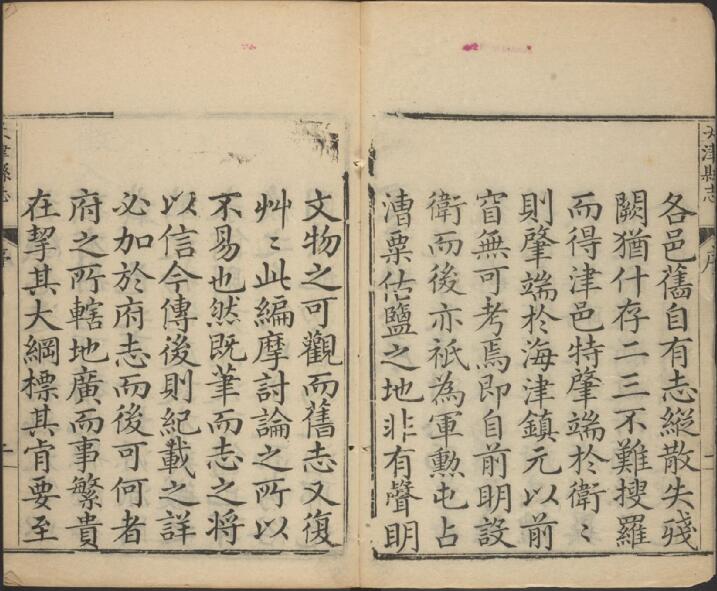 各邑舊自有志縱散失殘
闕猶什存二三不難搜羅
而得津邑特肇端於衛〻
則肇端於海津鎮元以前
窅無可考焉即自前明設
衛而後亦祇為軍勲屯占
漕粟佔鹽之地非有聲明
文物之可觀而舊志又復
艸〻此編摩討論之所以
不易也然既筆而志之將
以信今傳後則紀載之詳
必加於府志而後可何者
府之所轄地廣而事繁貴
在挈其大綱標其肯要至
天津縣志
序
津縣志